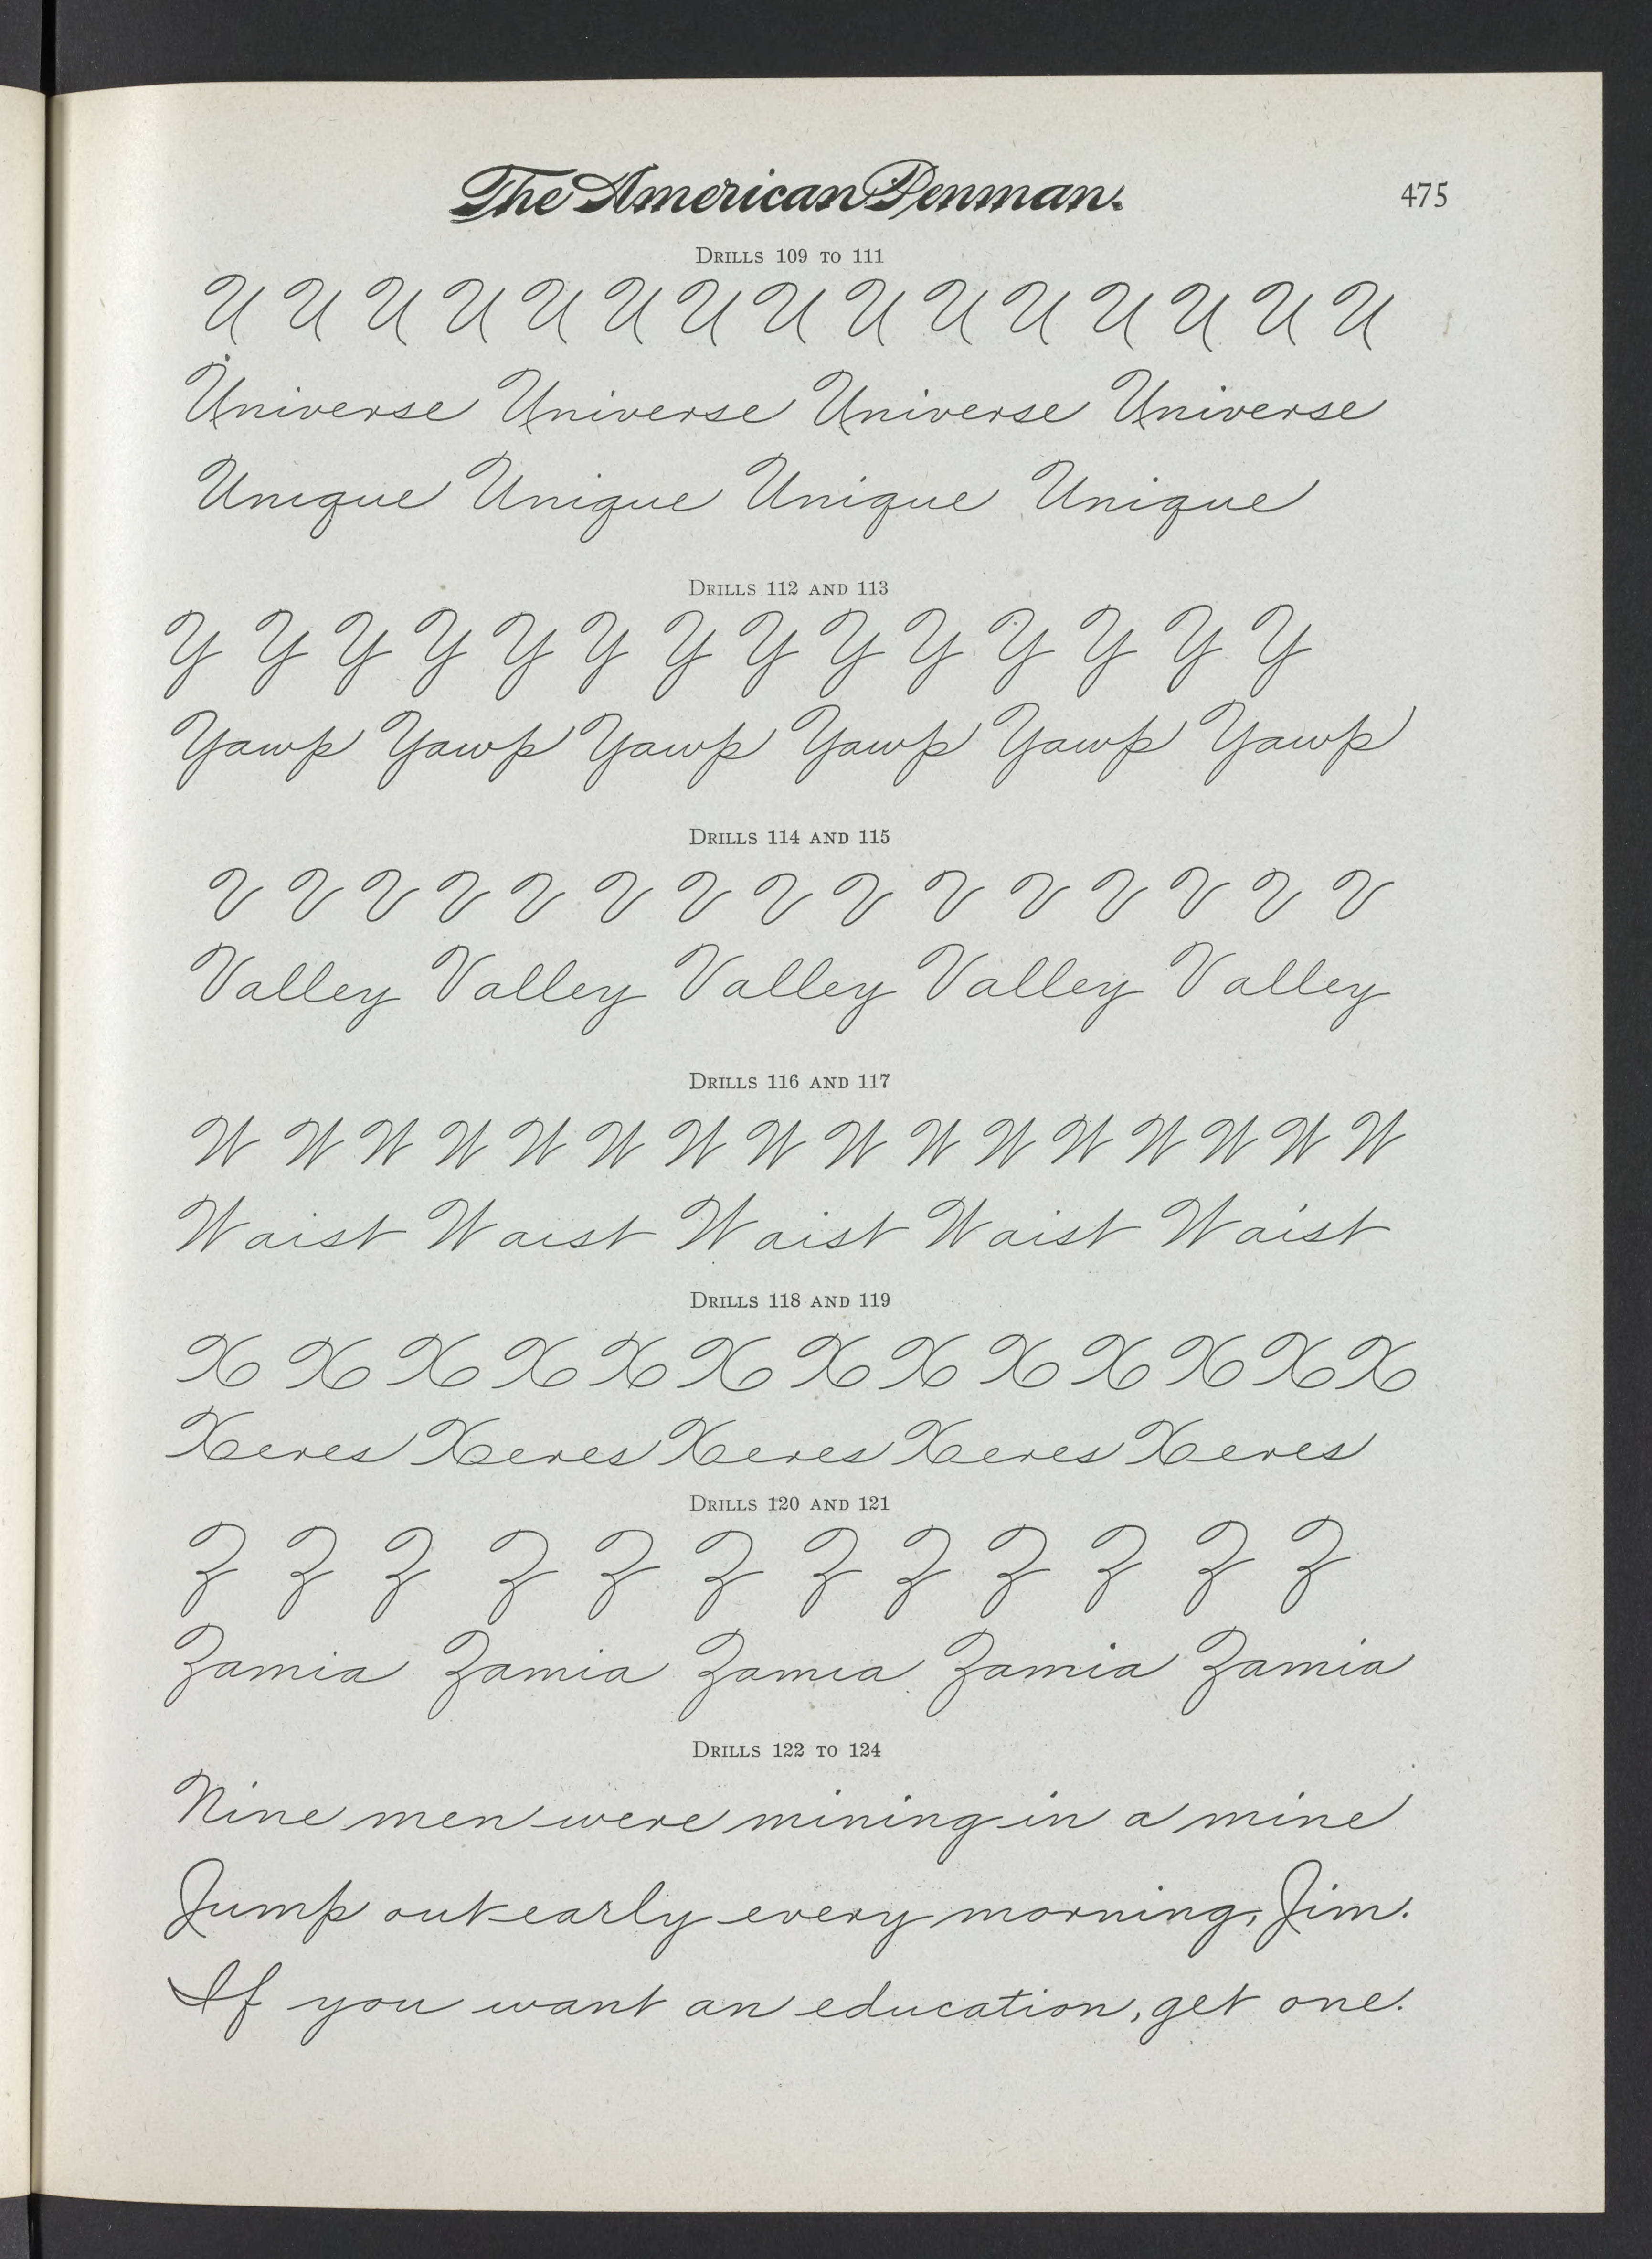 The American Penman.
475
DRILLS 109 TO 111
U U U U U U U U U U U U U U U
Universe Universe Universe Universe
Unique Unique Unique Unique
DRILLS 112 AND 113
Y Y Y Y Y Y Y Y Y Y Y Y Y Y
Yawp Yawp Yawp Yawp Yawp Yawp
DRILLS 114 AND 115
V V V V V V V V V V V V V V V
Valley Valley Valley Valley Valley
DRILLS 116 AND 117
W W W W W W W W W W W W W W W W
Waist Waist Waist Waist Waist
DRILLS 118 AND 119
X X X X X X X X X X X X X
Xeres Xeres Xeres Xeres Xeres
DRILLS 120 AND 121
Z Z Z Z Z Z Z Z Z Z Z Z
Zamia Zamia Zamia Zamia Zamia
DRILLS 122 TO 124
Nine men were mining in a mine
Jump out early every morning, Jim.
If you want an education, get one.